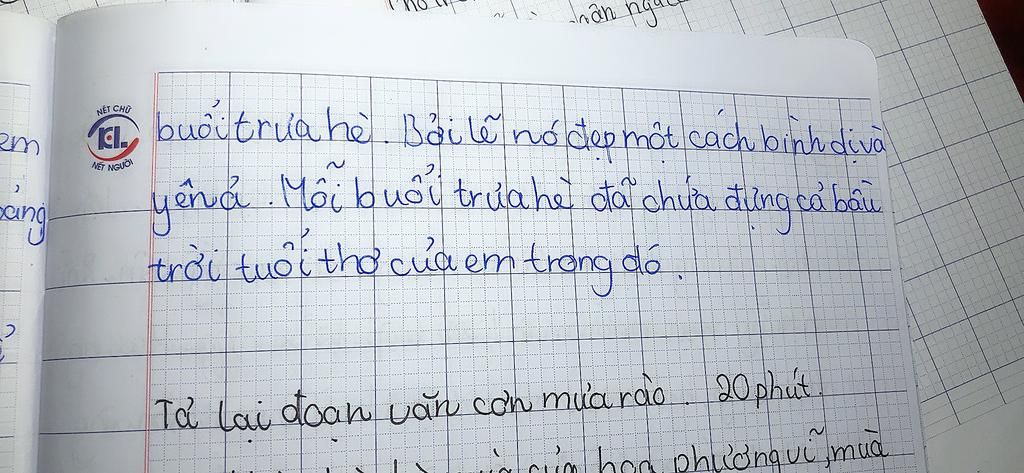 hân ngà
NÉT CHỮ
KL
NÉT NGƯỜI
em
buổi trưa hè. Bởi lẽ nó đẹp một cách bình dị và
yên ả. Mỗi buổi trưa hè đã chứa đựng cả bầu
trời tuổi thơ của em trong đó.
Tả lại đoạn văn cơn mưa rào. 20 phút.
của hoa phượng vĩ, mưa